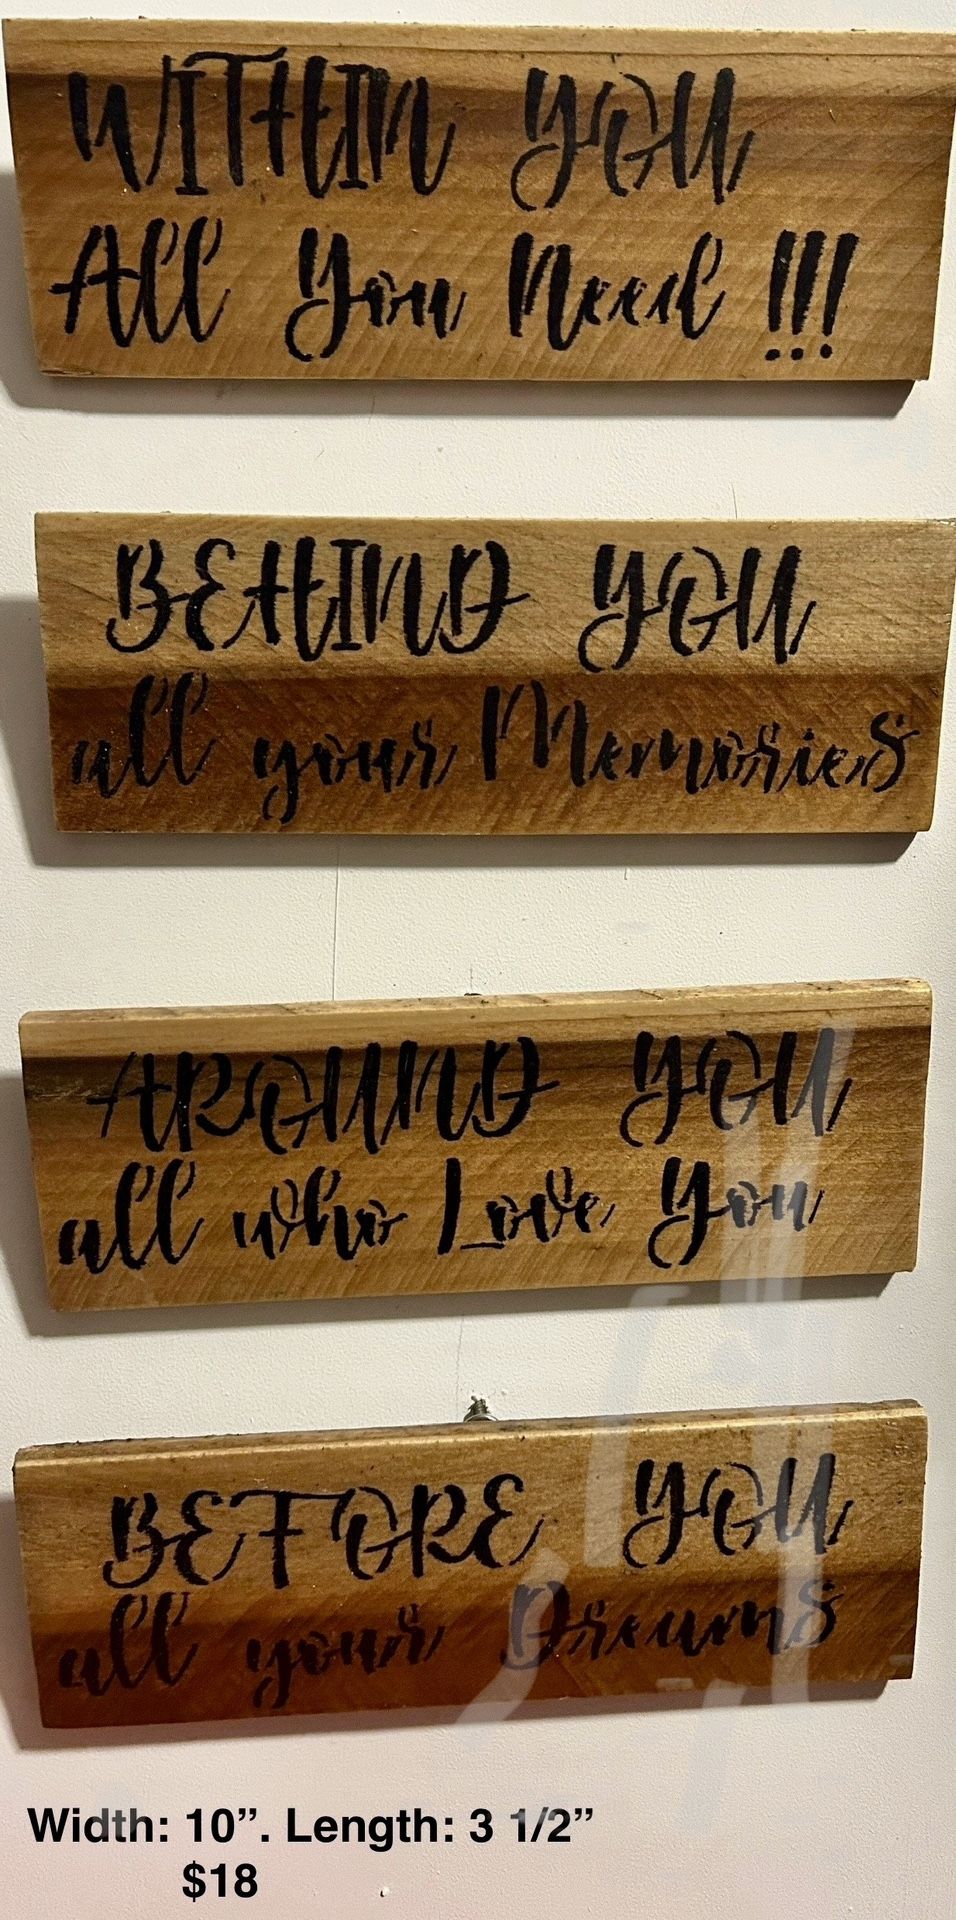 WITHIN YOU
All You Need !!!
BEHIND YOU
all your Memories
AROUND YOU
all who Love You
BEFORE YOU
all your Dreams
Width: 10”. Length: 3 1/2”
$18